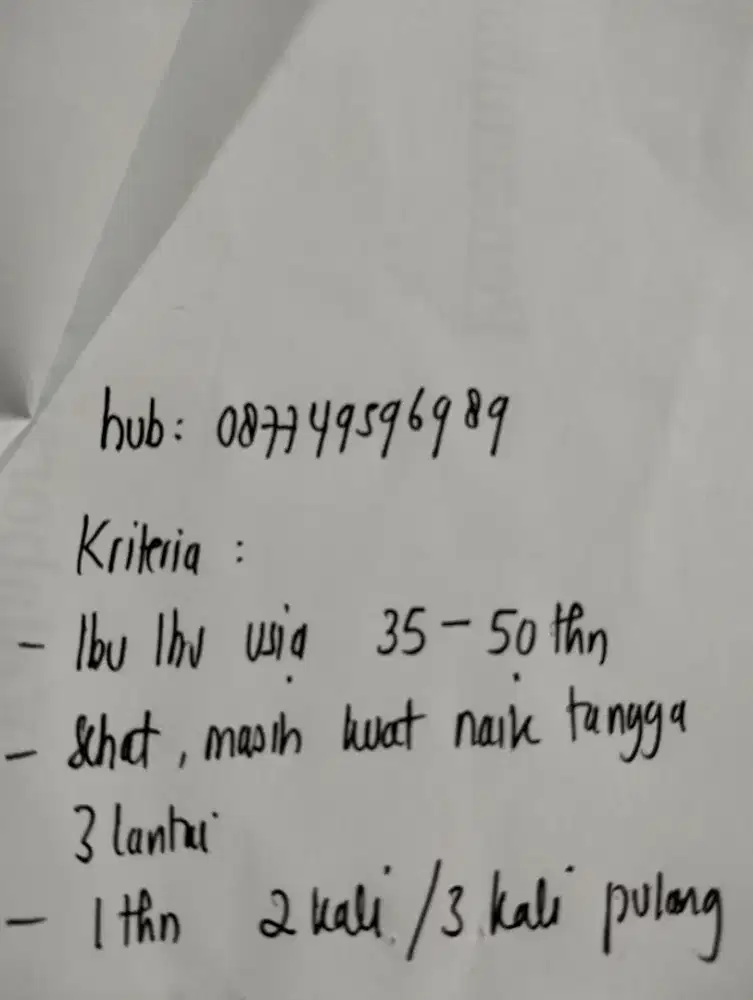 hub: 087749596989
Kriteria :
- Ibu Ibu usia 35-50 thn
- Sehat, masih kuat naik tangga
3 lantai
- 1 thn 2 kali /3 kali pulang